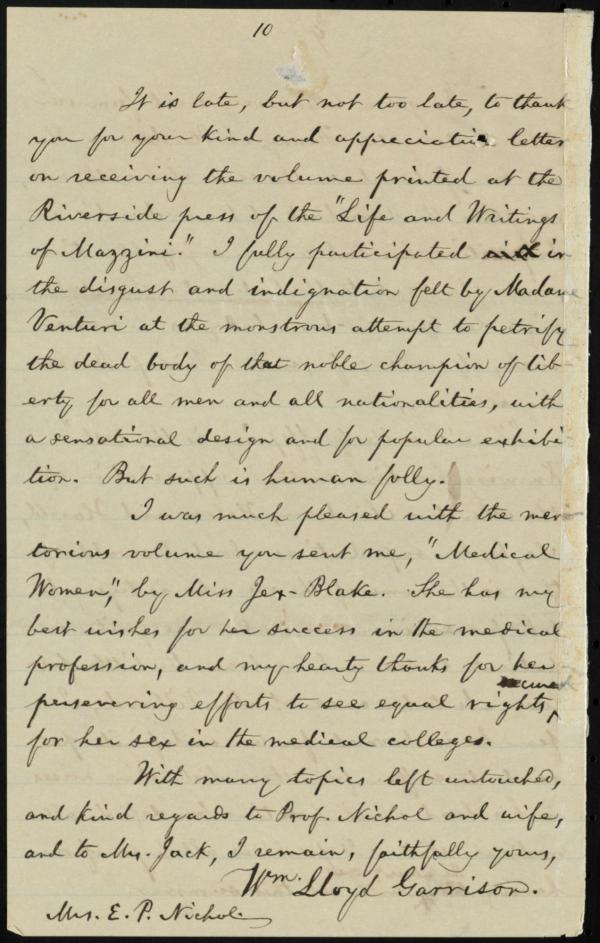 10
It is late, but not too late, to thank
you for your kind and appreciative letter
on receiving the volume printed at the
Riverside press of the "Life and Writings
of Mazzini." I fully participated in
the disgust and indignation felt by Madame
Venturi at the monstrous attempt to petrify
the dead body of that noble champion of lib-
erty for all men and all nationalities, with
a sensational design and for popular exhibi-
tion. But such is human folly.
I was much pleased with the mer-
torious volume you sent me, "Medical
Women," by Miss Jex-Blake. She has my
best wishes for her success in the medical
profession, and my hearty thanks for her
persevering efforts to see equal rights
secured
for her sex in the medical colleges.
With many topics left untouched,
and kind regards to Prof. Nichol and wife,
and to Mrs. Jack, I remain, faithfully yours,
Wm. Lloyd Garrison.
Mrs. E. P. Nichol.